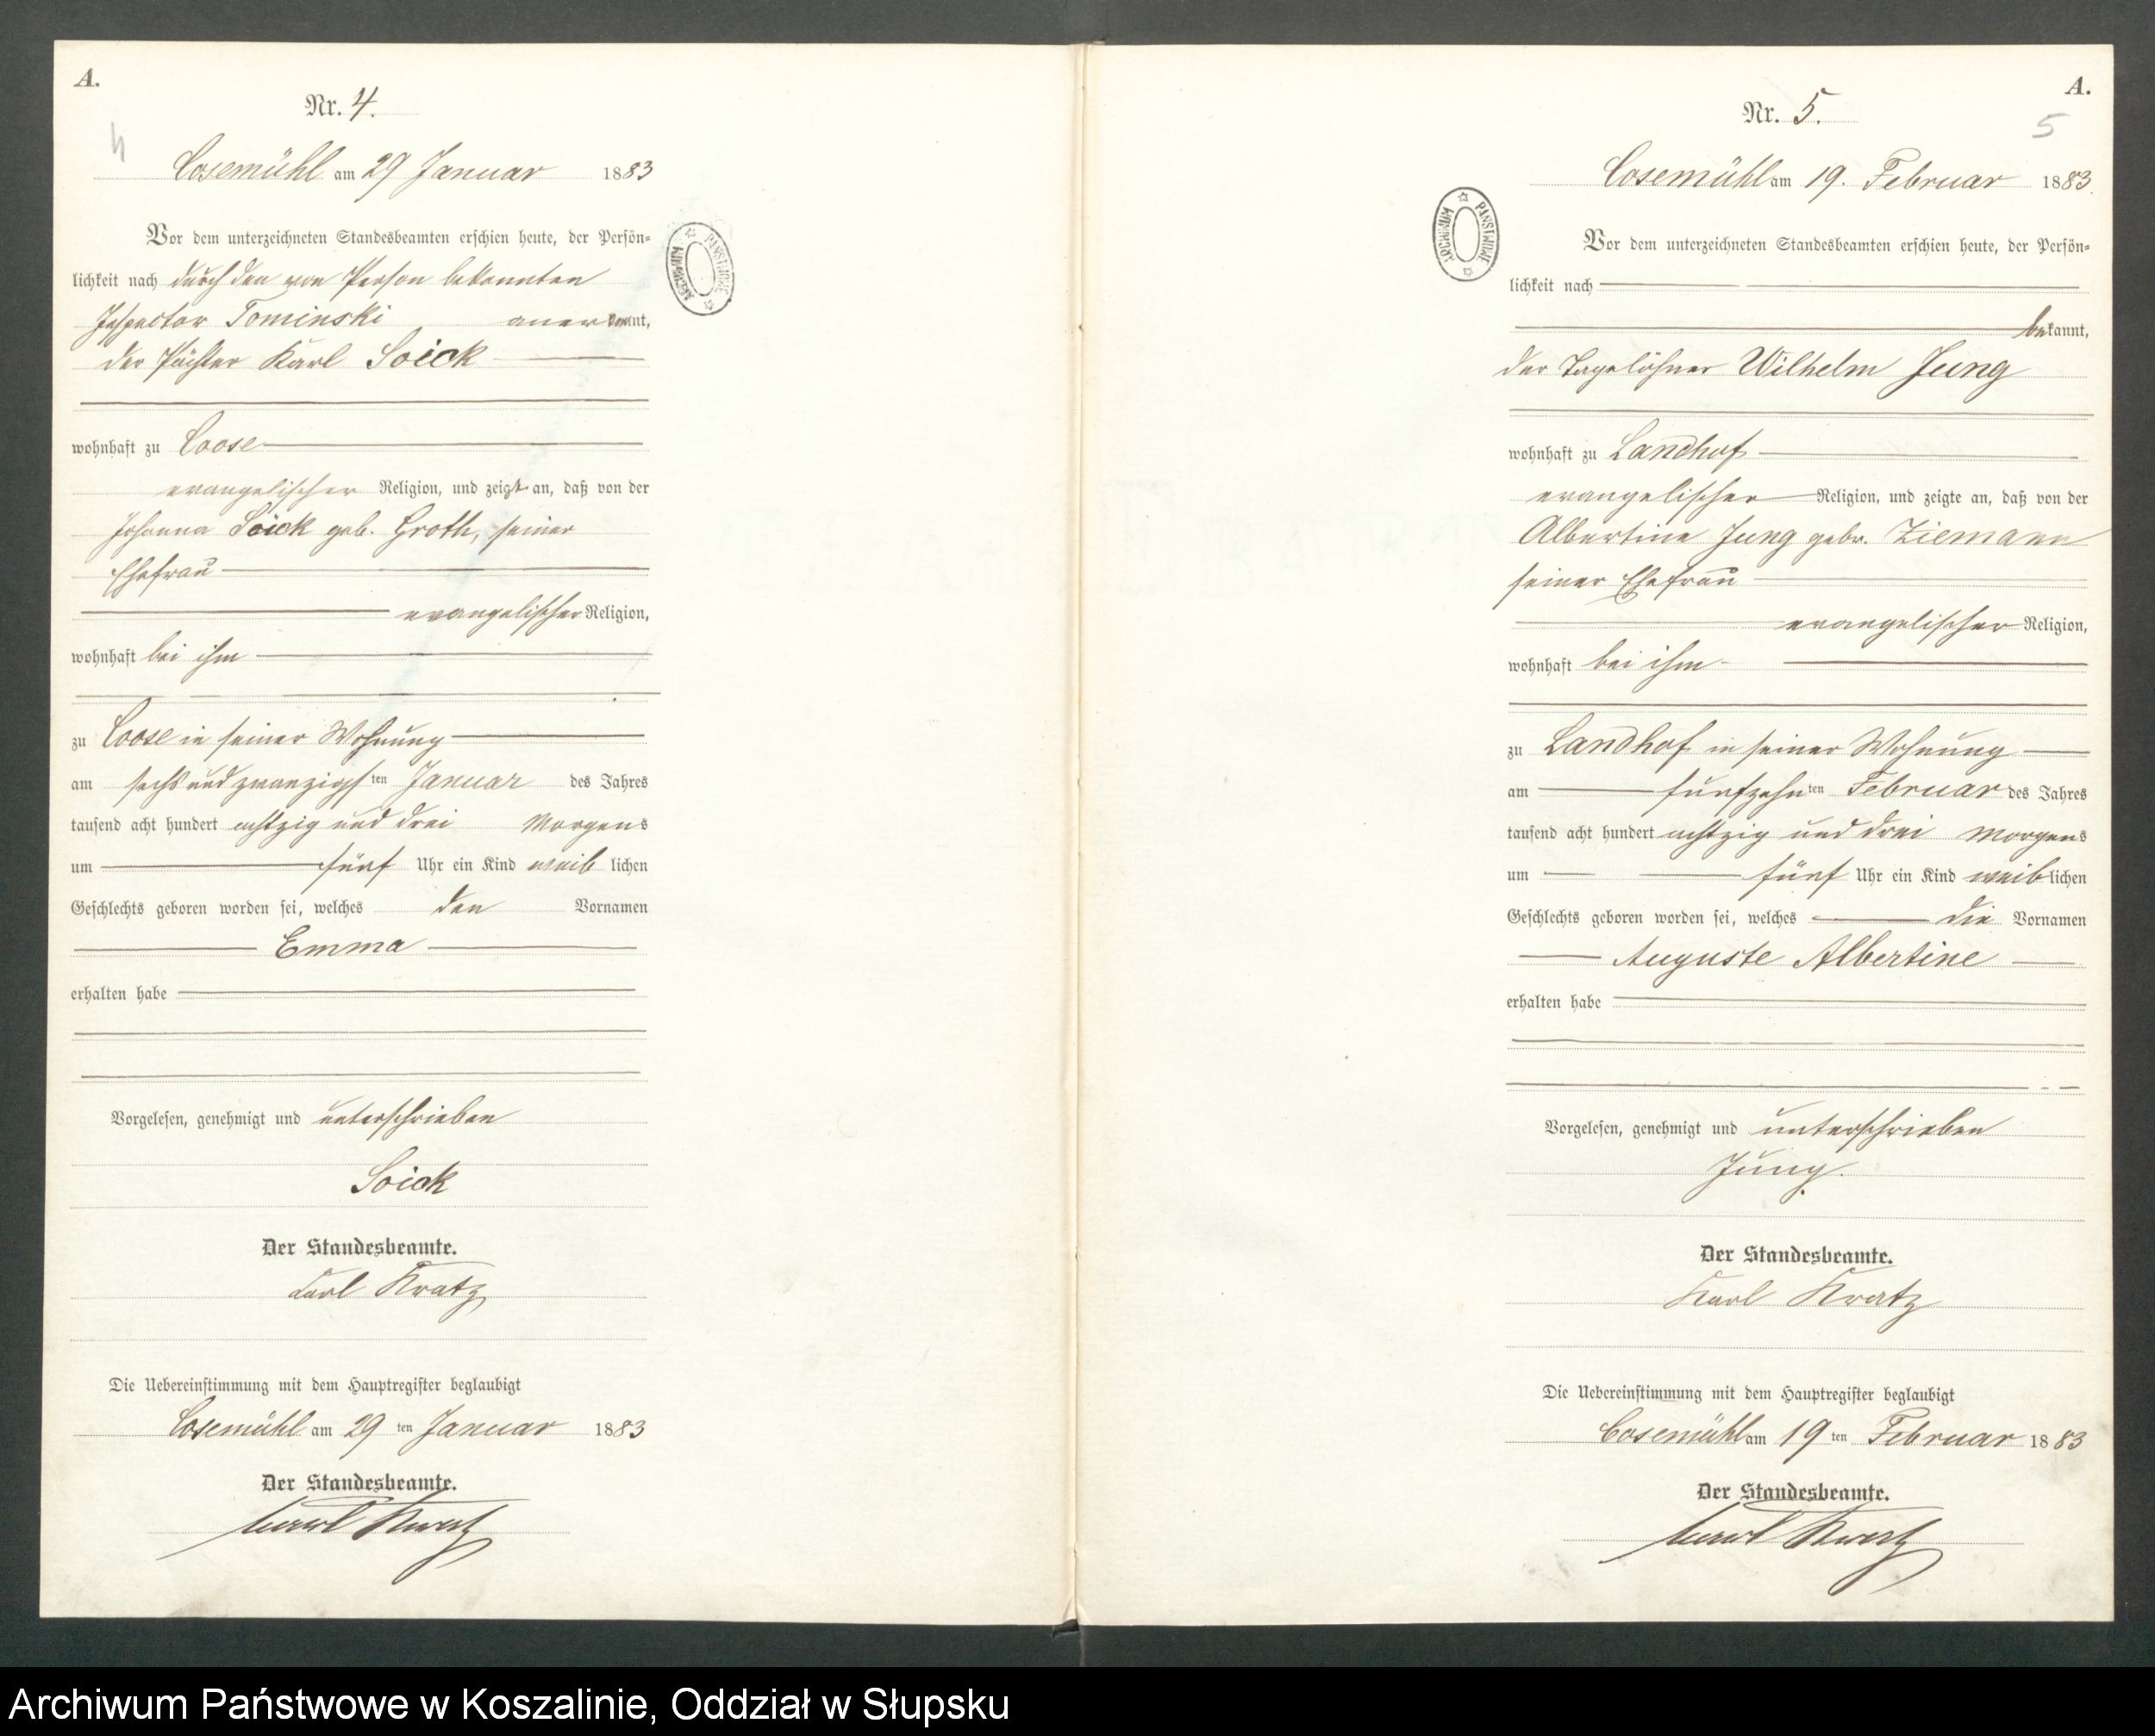 A.
Nr. 4.
4
Cosemühl am 29 Januar 1883
Vor dem unterzeichneten Standesbeamten erschien heute, der Persön-
lichkeit nach durch den von Person bekannten
Inspector Tominski anerkannt,
der Pächter Karl Soick
wohnhaft zu Coose
evangelischer Religion, und zeigt an, daß von der
Johanna Soick geb. Groth, seiner
Ehefrau
evangelischer Religion,
wohnhaft bei ihm
zu Coose in seiner Wohnung
am sechs und zwanzigsten Januar des Jahres
tausend acht hundert achtzig und drei Morgens
um fünf Uhr ein Kind weiblichen
Geschlechts geboren worden sei, welches den Vornamen
Emma
erhalten habe
Vorgelesen, genehmigt und unterschrieben
Soick
Der Standesbeamte.
Karl Kratz
Die Uebereinstimmung mit dem Hauptregister beglaubigt
Cosemühl am 29 ten Januar 1883
Der Standesbeamte.
Karl Kratz
ARCHIWUM PAŃSTWOWE
A.
Nr. 5.
5
Cosemühl am 19. Februar 1883.
ARCHIWUM PAŃSTWOWE
Vor dem unterzeichneten Standesbeamten erschien heute, der Persön-
lichkeit nach
bekannt,
der Tagelöhner Wilhelm Jung
wohnhaft zu Landhof
evangelischer Religion, und zeigte an, daß von der
Albertine Jung gebr. Ziemann
seiner Ehefrau
evangelischer Religion,
wohnhaft bei ihm
zu Landhof in seiner Wohnung
am fünfzehnten Februar des Jahres
tausend acht hundert achtzig und drei Morgens
um fünf Uhr ein Kind weiblichen
Geschlechts geboren worden sei, welches die Vornamen
Auguste Albertine
erhalten habe
Vorgelesen, genehmigt und unterschrieben
Jung.
Der Standesbeamte.
Karl Kratz
Die Uebereinstimmung mit dem Hauptregister beglaubigt
Cosemühl am 19 ten Februar 1883
Der Standesbeamte.
Karl Kratz
Archiwum Państwowe w Koszalinie, Oddział w Słupsku